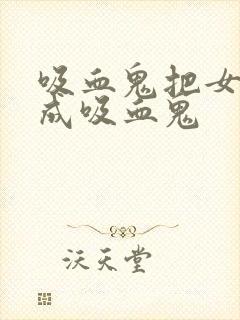 吸血鬼把女
成吸血鬼
沃天堂